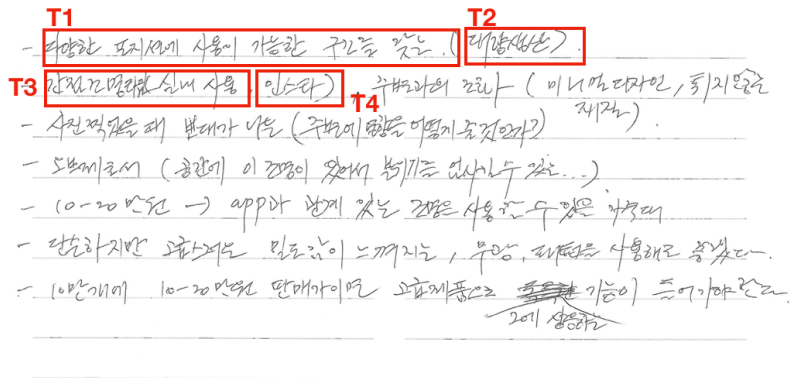 T1 T2
- 다양한 포지션에 사용이 가능한 구간을 찾는. (대량생산).
T3 간접조명 실내 사용, 인스타) T4 . 주변과의 조화 (미니멀디자인, 튀지않은 재질)
- 사진찍었을 때 반대가 나는 (주변에 영향을 어떻게 줄것인가?)
- 오브제로서 (공간에 이 조명이 있어서 분위기를 연사할 수 있는...)
- 10-20만원 → app과 관계 있는 조명은 사용할 수 있을 가격대
- 단순하지만 고급스러운 밀도감이 느껴지는, 무광, 패턴을 사용해도 좋겠다.
- 10만개에 10-20만원 판매가이면 고급제품으로 기능이 들어가야 한다.
그에 상응하는